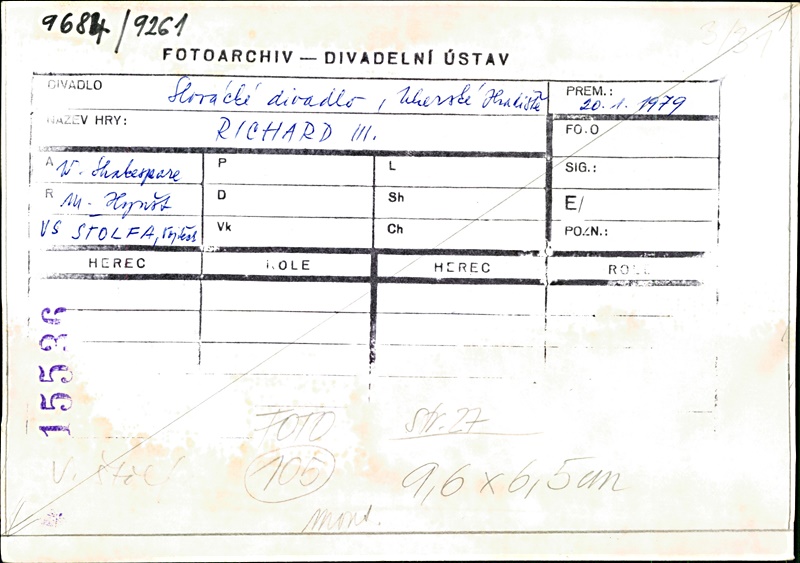 9684/9261
3/31
FOTOARCHIV — DIVADELNÍ ÚSTAV
DIVADLO Slovácké divadlo, Uherské Hradiště PREM.: 20.1.1979
NÁZEV HRY: RICHARD III. FOTO
A W. Shakespeare P L SIG.:
R M. Hynšt D Sh E/
VS ŠTOLFA, Vojtěch Vk Ch POZN.:
HEREC ROLE HEREC ROLE
15536
FOTO str. 27
V. Štol 105 9,6 x 6,5 cm
mont.